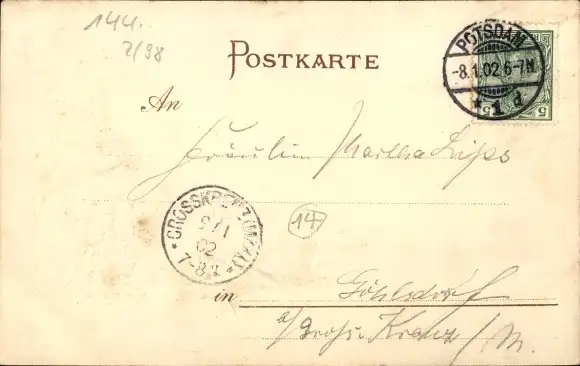 144.
2/98
POSTKARTE
POTSDAM
-8.1.02 6-7N.
* 1 d
5 5
An
Fräulein Martha Lips
GROSSKREUZ (MARK)
9/1
02
* 7-8V *
14
in Göhlsdorf
a/ Gross Kreuz / M.